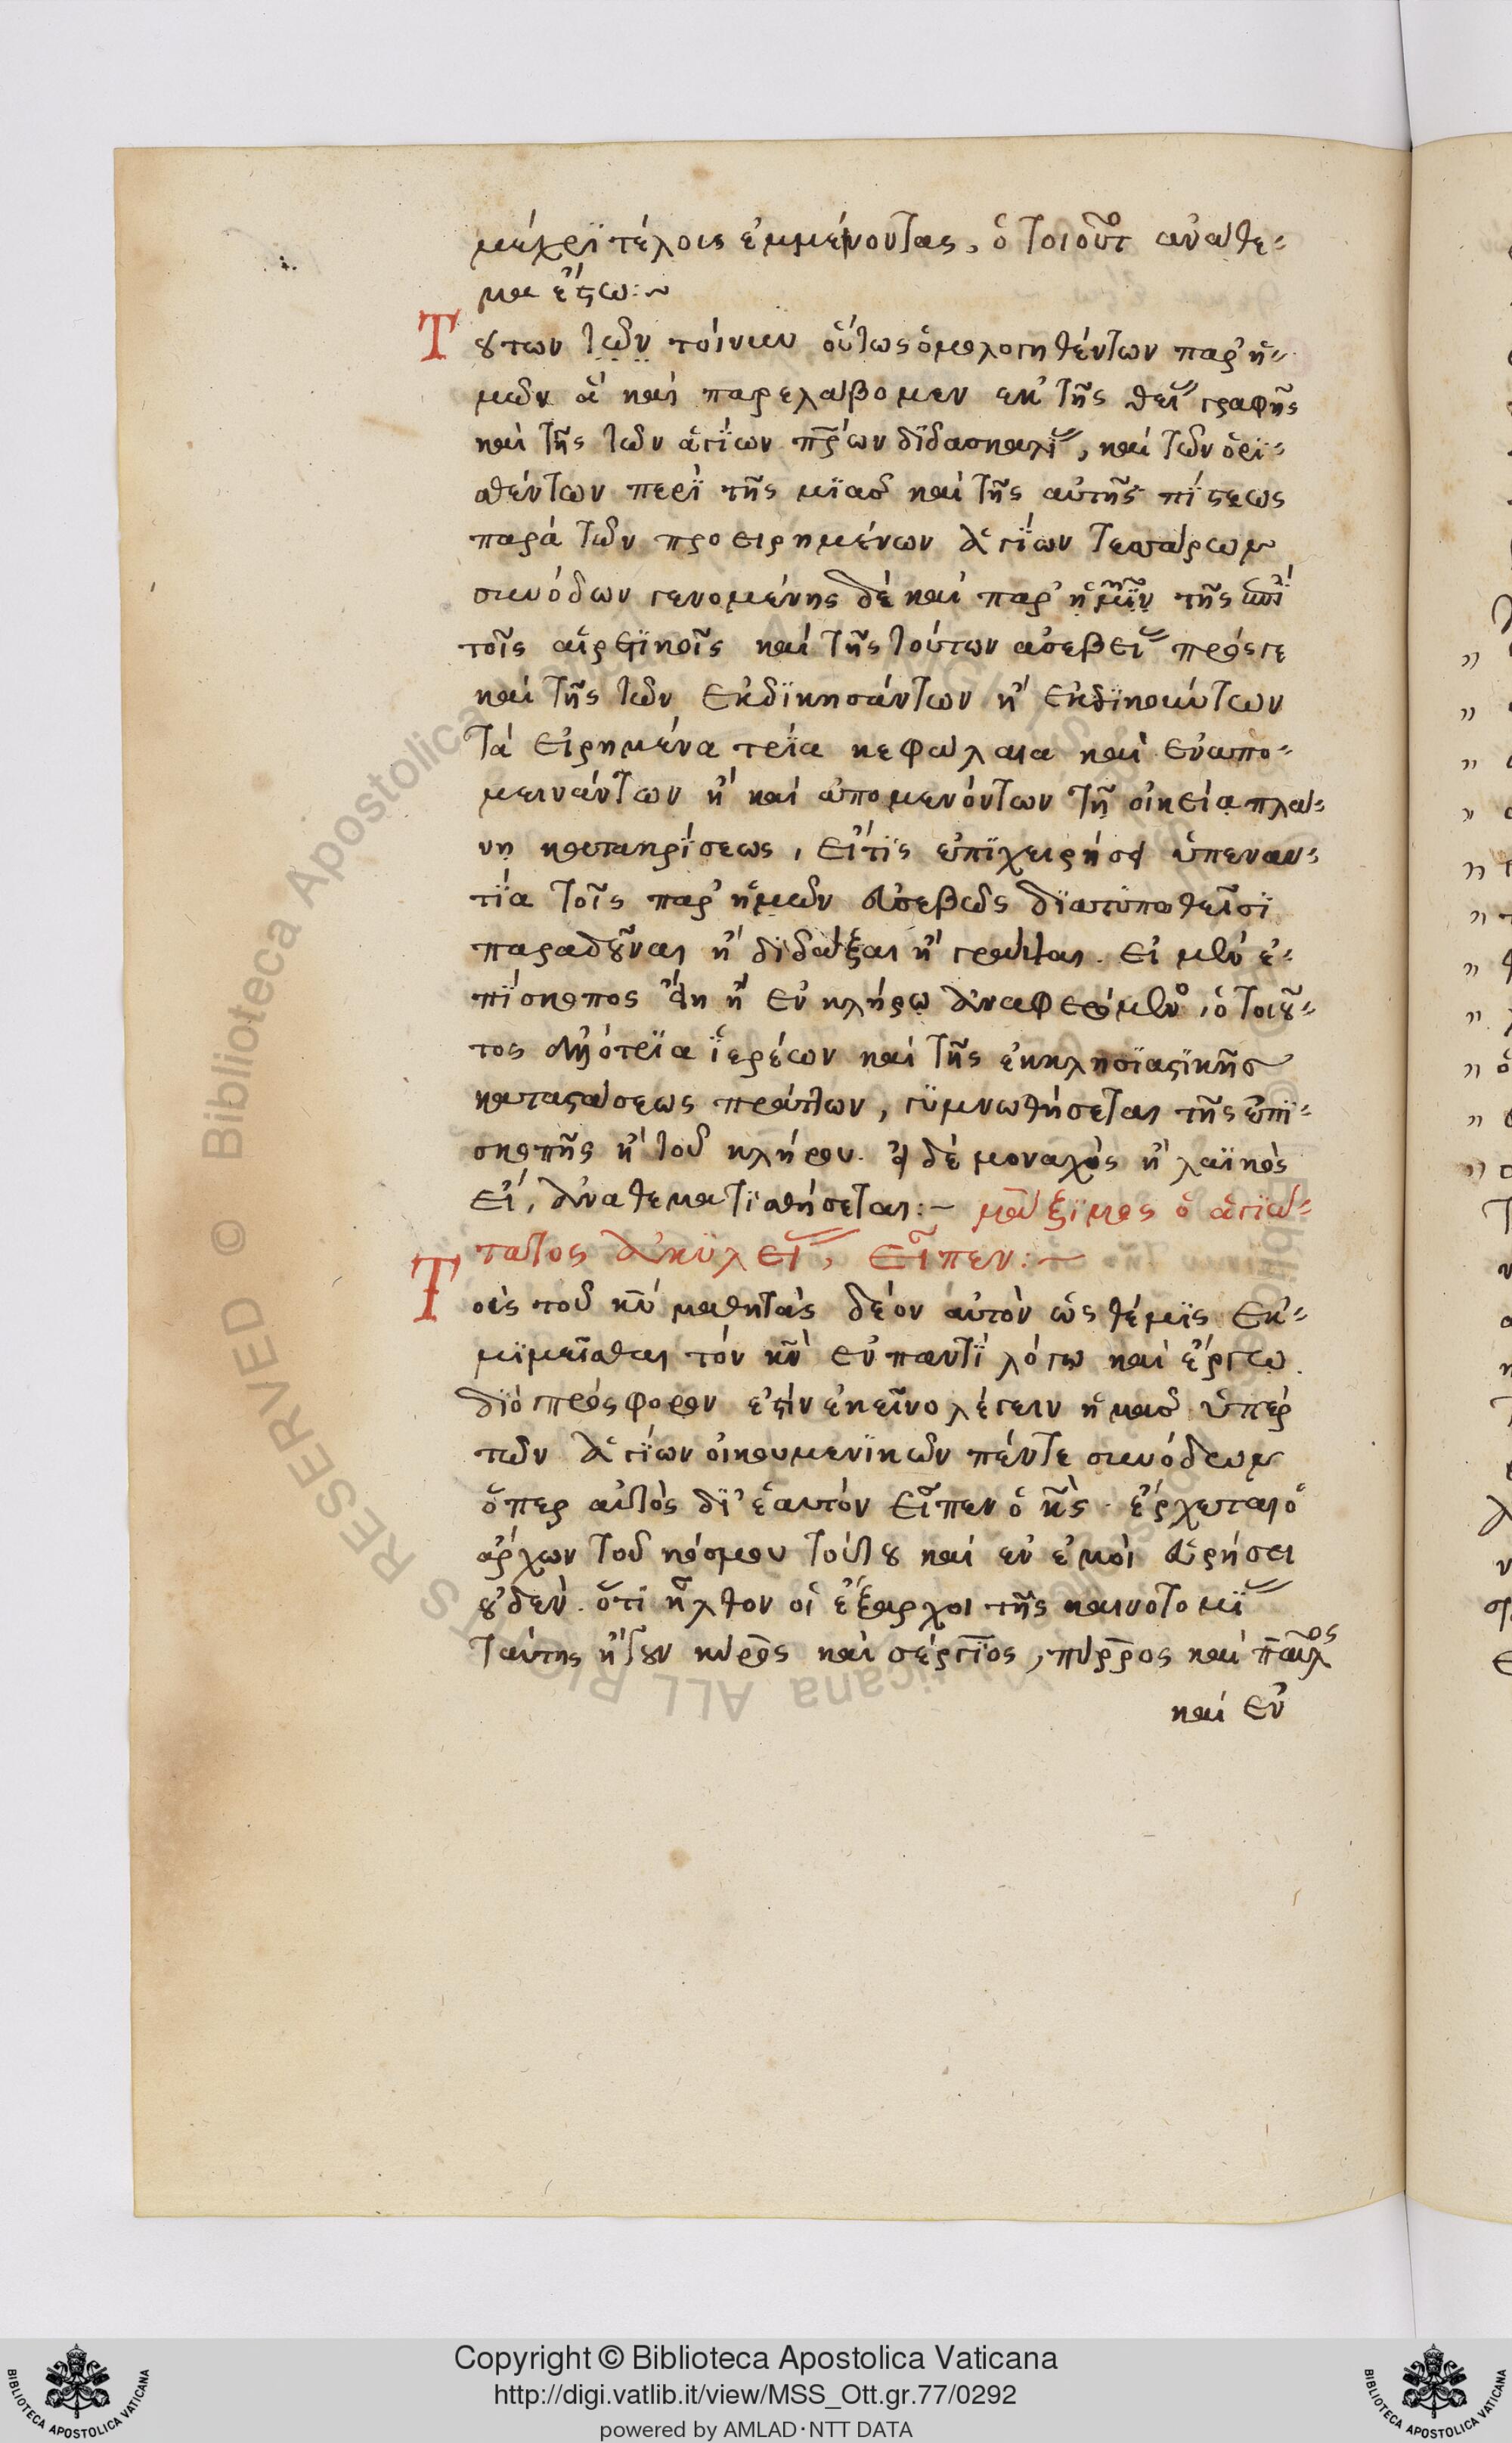 μέχρϊ τέλους ἐμμένοντας, ὁ τοιοῦτ ἀνάθε-
μα ἔστω:~
Τούτων τῶν τοίνυν οὕτως ὁμολογηθέντων παρ' ἡ-
μῶν ἃ καὶ παρελάβομεν ἐκ τῆς θεί γραφῆς
καὶ τῆς τῶν ἁγίων πρων διδασκαλί, καὶ τῶν ὁρι-
σθέντων περὶ τῆς μιᾶς καὶ τῆς αὐτῆς πίστεως
παρὰ τῶν προειρημένων ἁγίων τεσσάρων
συνόδων γενομένης δὲ καὶ παρ' ἡμῖν τῆς
τοῖς αἱρετικοῖς καὶ τῆς τούτων ἀσεβεί πρόσγε
καὶ τῆς τῶν ἐκδικησάντων ἢ ἐκδικούντων
τὰ εἰρημένα τρία κεφάλαια καὶ ἐναπο-
μεινάντων ἢ καὶ ἀπομενόντων τῇ οἰκείᾳ πλά-
νῃ κατακρίσεως, εἴ τις ἐπιχειρήσει ὑπεναν-
τία τοῖς παρ' ἡμῶν εὐσεβῶς διατυπωθεῖσι
παραδοῦναι ἢ διδάξαι ἢ γράψαι. εἰ μὲν ἐ-
πίσκοπος εἴη ἢ ἐν κλήρῳ ἀναφερόμεν, ὁ τοιοῦ-
τος ἀλλότρια ἱερέων καὶ τῆς ἐκκλησιαστικῆς
καταστάσεως πράττων, γυμνωθήσεται τῆς ἐπι-
σκοπῆς ἢ τοῦ κλήρου. εἰ δὲ μοναχὸς ἢ λαϊκὸς
εἴ, ἀναθεματισθήσεται:~ μάξιμος ὁ ἁγιώ-
τατος ἀκυλεί, εἶπεν:~
Τοὺς τοῦ κυ μαθητὰς δέον αὐτὸν ὡς θέμις ἐκ-
μιμεῖσθαι τὸν κν ἐν παντὶ λόγῳ καὶ ἔργῳ.
διὸ πρόσφορον ἐστὶν ἐκεῖνο λέγειν ἡμᾶς ὑπὲρ
τῶν ἁγίων οἰκουμενικῶν πέντε συνόδων
ὅπερ αὐτὸς δι' ἑαυτὸν εἶπεν ὁ κς. ἔρχεται ὁ
ἄρχων τοῦ κόσμου τούτου καὶ ἐν ἐμοὶ εὑρήσει
οὐδέν. ὅτι ἦλθον οἱ ἔξαρχοι τῆς καινοτομί
ταύτης ἤγουν κῦρος καὶ σέργιος, πύρρος καὶ παῦλος
καὶ ἐν
Copyright © Biblioteca Apostolica Vaticana
http://digi.vatlib.it/view/MSS_Ott.gr.77/0292
powered by AMLAD·NTT DATA